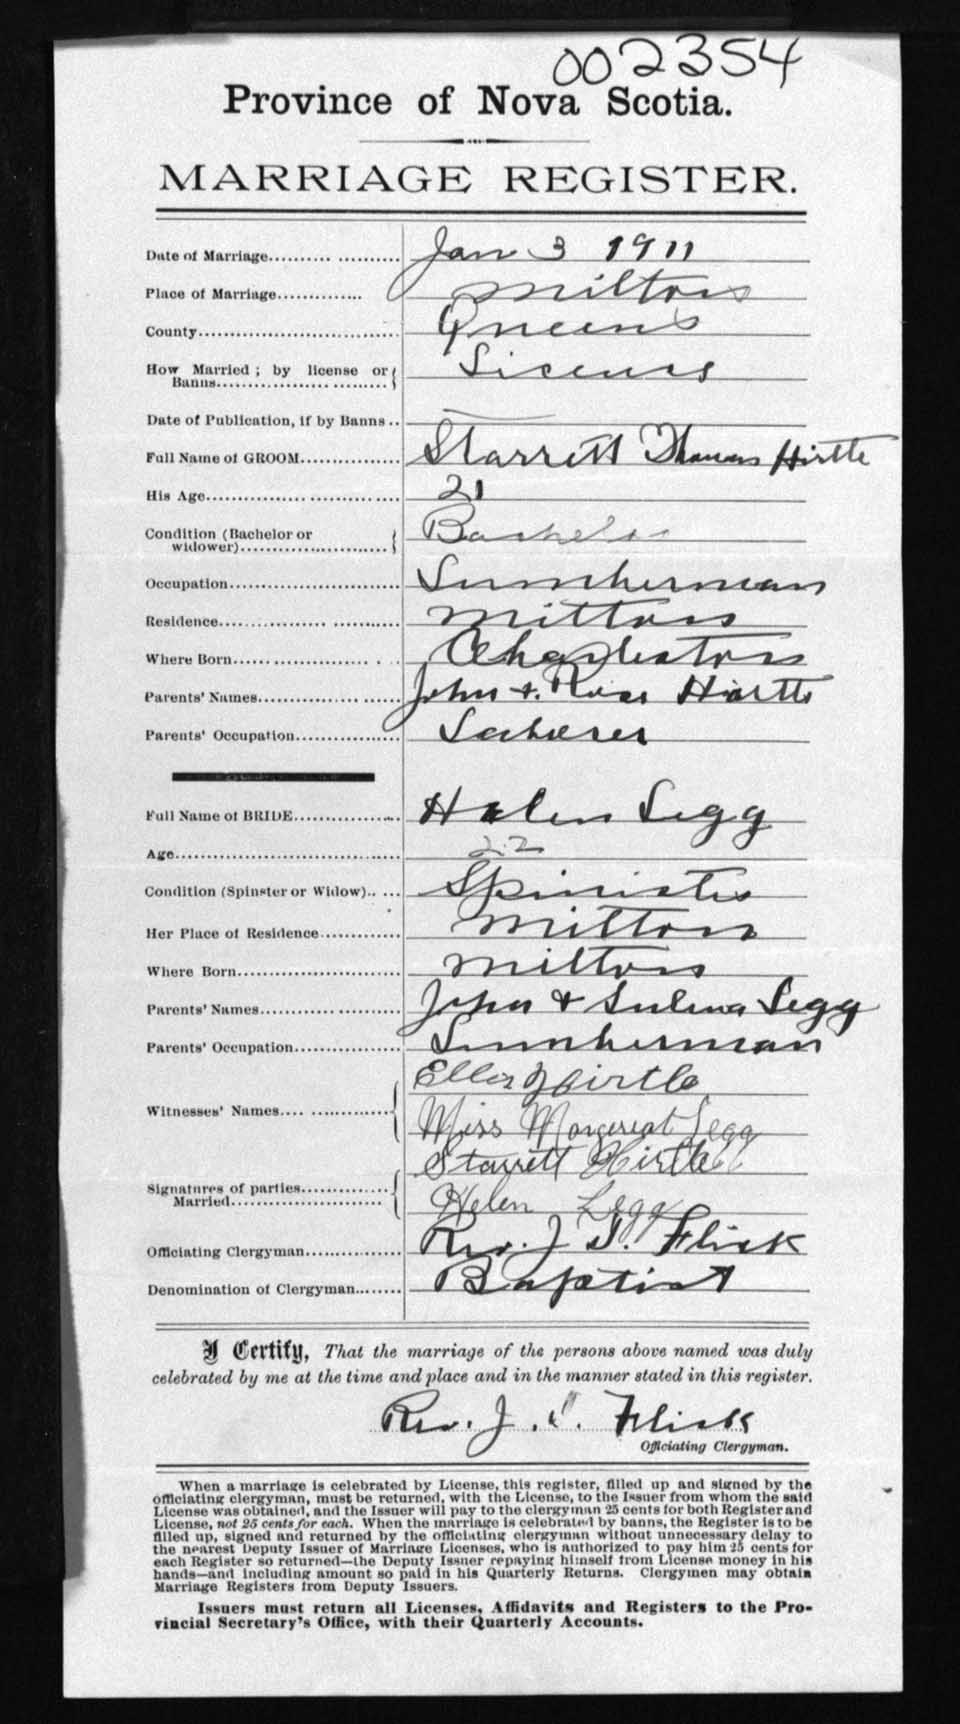 002354
Province of Nova Scotia.
MARRIAGE REGISTER.
Date of Marriage.......... .......... Jan 3 1911
Place of Marriage............. Milton
County............................... Queens
How Married ; by license or Banns...................... License
Date of Publication, if by Banns ..
Full Name of GROOM................ Starrett Thomas Hirtle
His Age.............................. 21
Condition (Bachelor or widower)........................ Bachelor
Occupation........................... Lumberman
Residence............................. Milton
Where Born.......................... Charleston
Parents' Names....................... John & Rose Hirtle
Parents' Occupation................. Laborer
Full Name of BRIDE................. Helen Legg
Age.................................... 22
Condition (Spinster or Widow).. ... Spinster
Her Place of Residence............. Milton
Where Born.......................... Milton
Parents' Names....................... John & Legg
Parents' Occupation................. Lumberman
Witnesses' Names.... .............. Hirtle
Miss Margereat Legg
Starrett Hirtle
Signatures of parties Married........................ Helen Legg
Officiating Clergyman.............. Rev. J Flick
Denomination of Clergyman........ Baptist
I Certify, That the marriage of the persons above named was duly
celebrated by me at the time and place and in the manner stated in this register.
Rev. J. Flick
Officiating Clergyman.
When a marriage is celebrated by License, this register, filled up and signed by the
officiating clergyman, must be returned, with the License, to the Issuer from whom the said
License was obtained, and the Issuer will pay to the clergyman 25 cents for both Register and
License, not 25 cents for each. When the marriage is celebrated by banns, the Register is to be
filled up, signed and returned by the officiating clergyman without unnecessary delay to
the nearest Deputy Issuer of Marriage Licenses, who is authorized to pay him 25 cents for
each Register so returned—the Deputy Issuer repaying himself from License money in his
hands—and including amount so paid in his Quarterly Returns. Clergymen may obtain
Marriage Registers from Deputy Issuers.
Issuers must return all Licenses, Affidavits and Registers to the Pro-
vincial Secretary's Office, with their Quarterly Accounts.